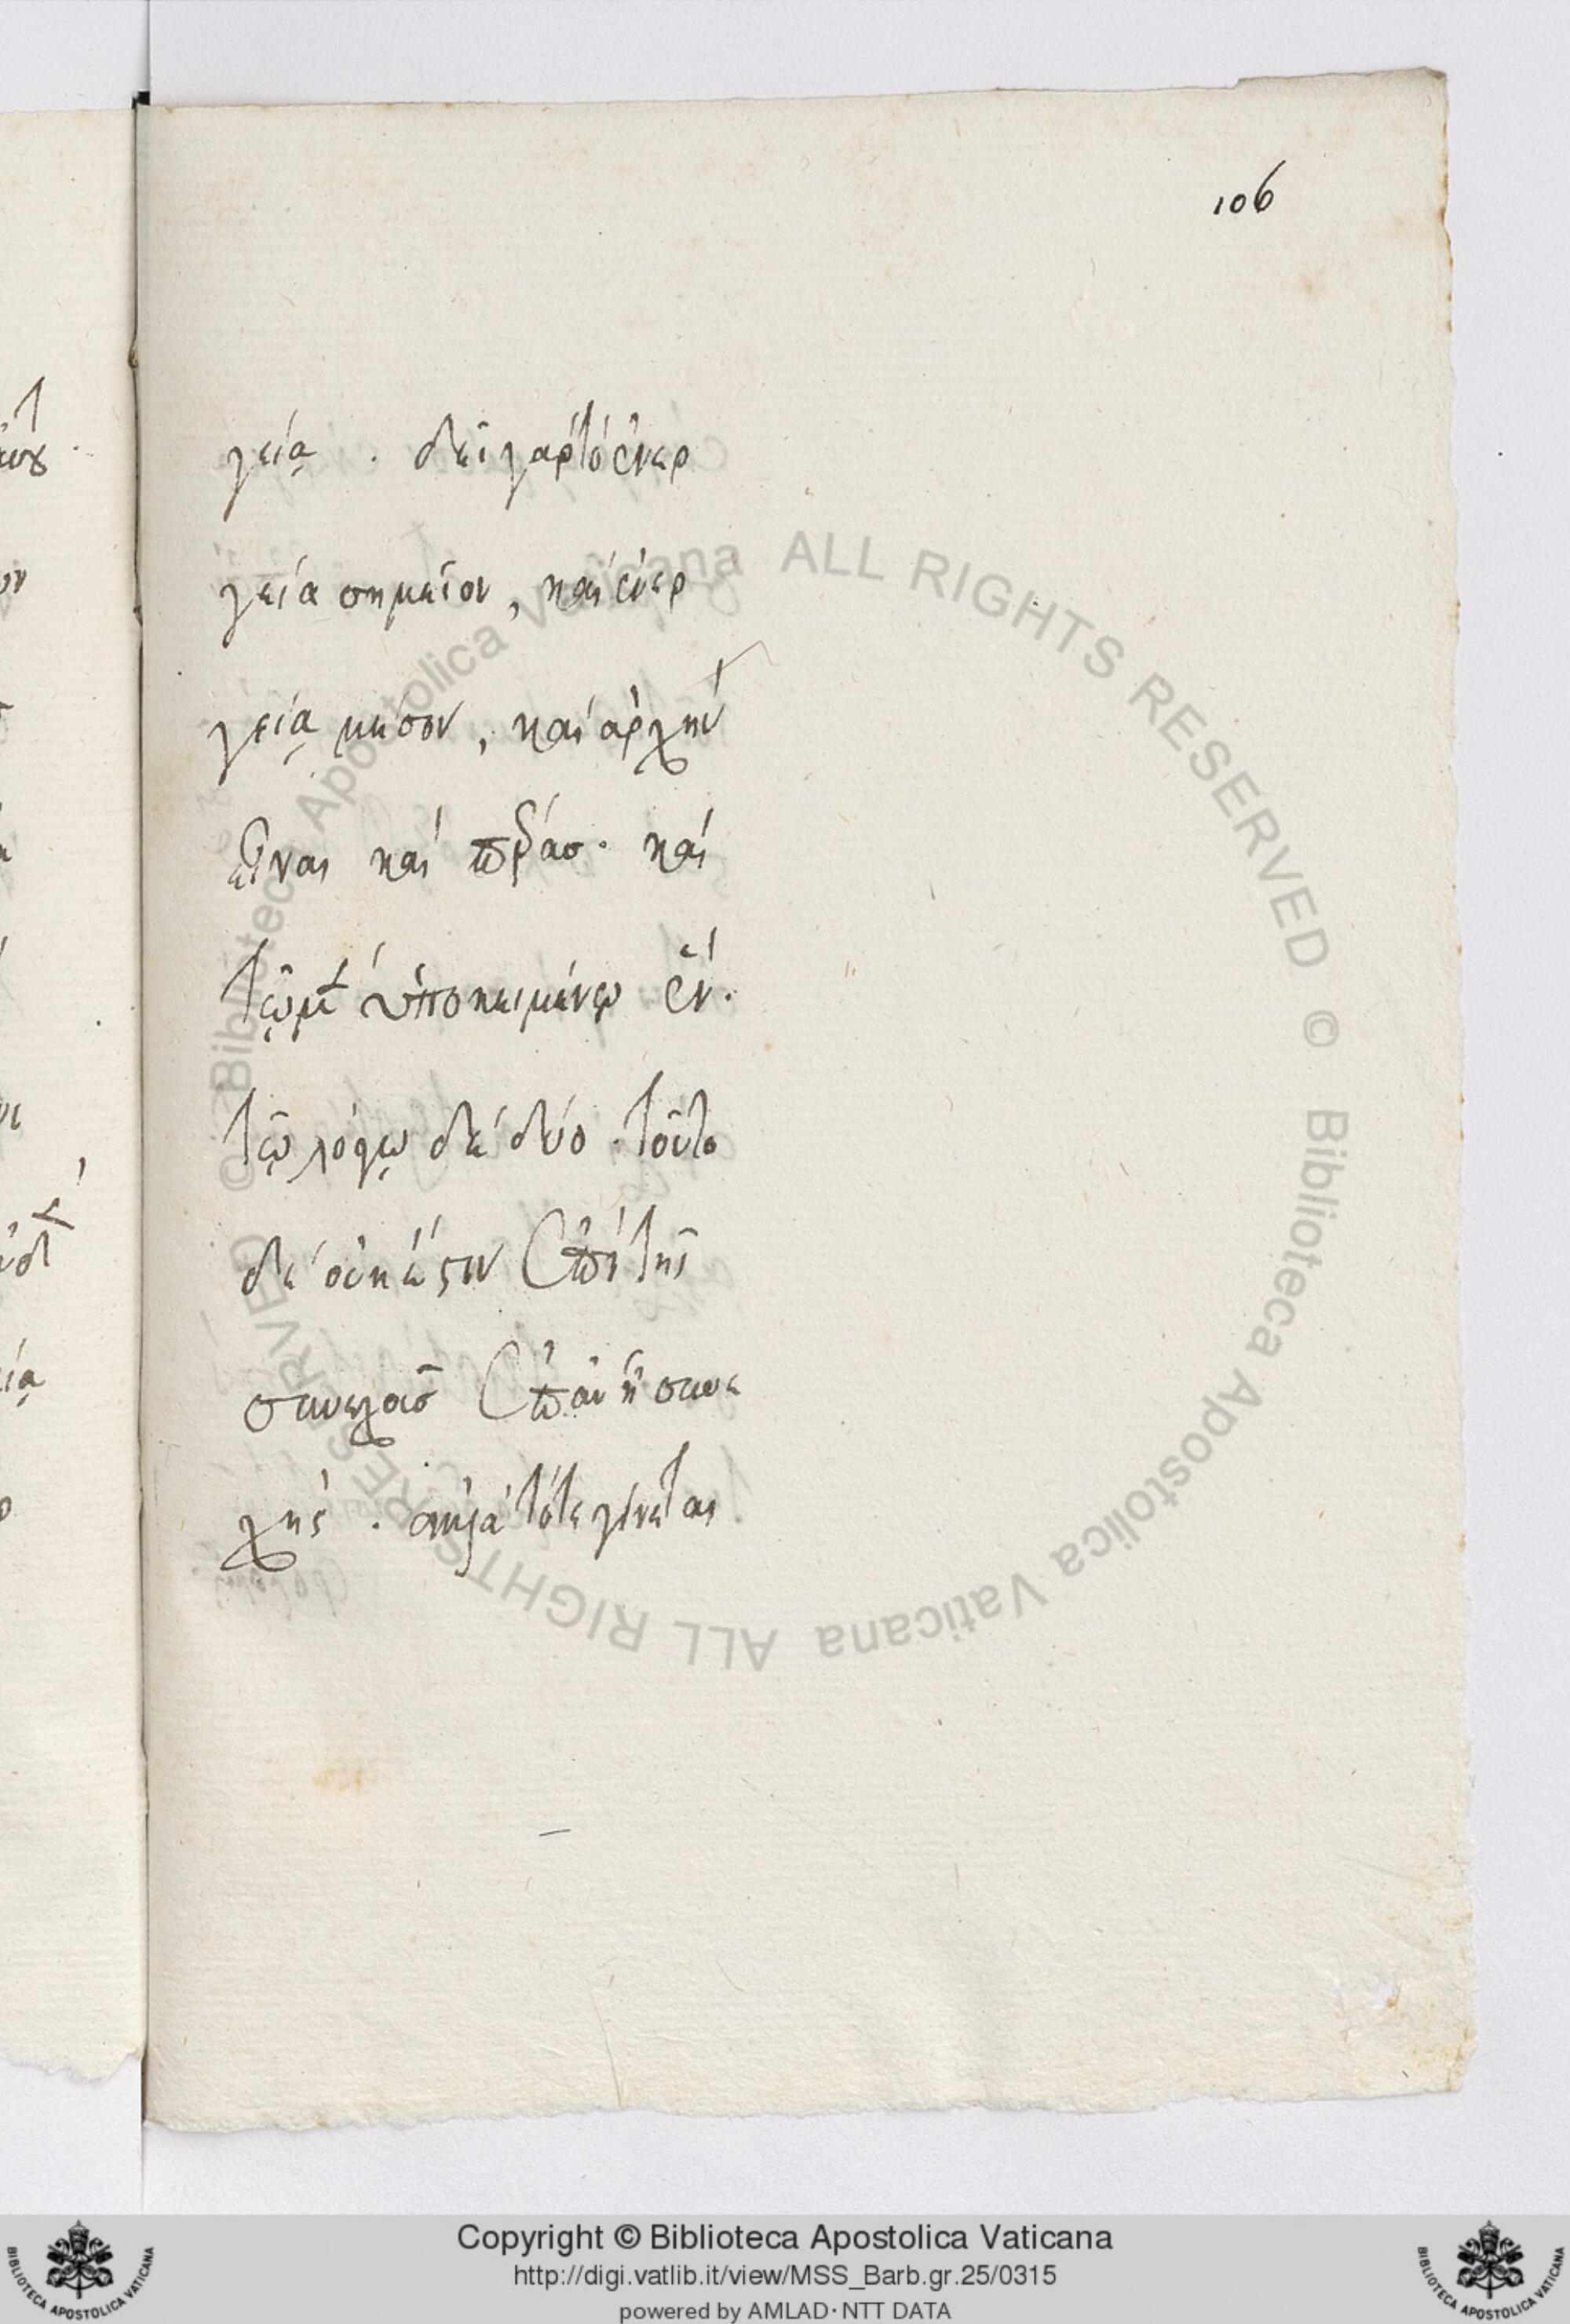 106
γεία . δεῖ γὰρ τὸ ἐνερ
γεία σημεῖον, καὶ ἐνερ
γεία μέσον, καὶ ἀρχὴν
εἶναι καὶ πέρας. καὶ
τῷ μὲν ὑποκειμένῳ ἓν.
τῷ λόγῳ δὲ δύο. τοῦτο
δὲ οὐκ ἔστιν ἐπὶ τῆς
συνεχοῦς ἐπὰν ᾖ συνε
χὴς . ἀλλὰ τότε γίνεται
© Biblioteca Apostolica Vaticana ALL RIGHTS RESERVED
© Biblioteca Apostolica Vaticana ALL RIGHTS RESERVED
Copyright © Biblioteca Apostolica Vaticana
http://digi.vatlib.it/view/MSS_Barb.gr.25/0315
powered by AMLAD · NTT DATA
BIBLIOTECA APOSTOLICA VATICANA
BIBLIOTECA APOSTOLICA VATICANA